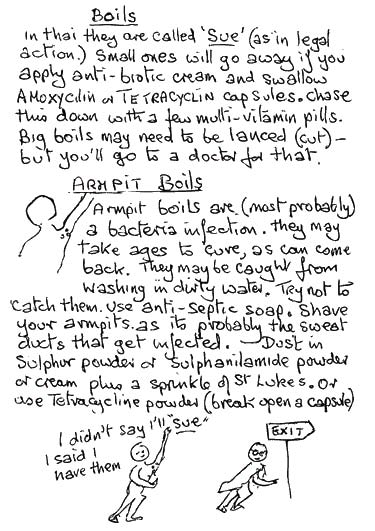 Boils
In thai they are called 'Sue' (as in legal
action.) Small ones will go away if you
apply anti-biotic cream and swallow
AMOXYCILIN or TETRACYCLIN capsules. Chase
this down with a few multi-vitamin pills.
Big boils may need to be lanced (cut) -
but you'll go to a doctor for that.
ARMPIT Boils
Armpit boils are (most probably)
a bacteria infection. They may
take ages to cure, as can come
back. They may be caught from
washing in dirty water. Try not to
catch them. Use anti-septic soap. Shave
your armpits. as its probably the sweat
ducts that get infected. - Dust in
Sulphur powder or Sulphanilamide powder
or cream plus a sprinkle of St Lukes. Or
use Tetracycline powder (break open a capsule)
I didn't say I'll "Sue"
I said I
have them
EXIT